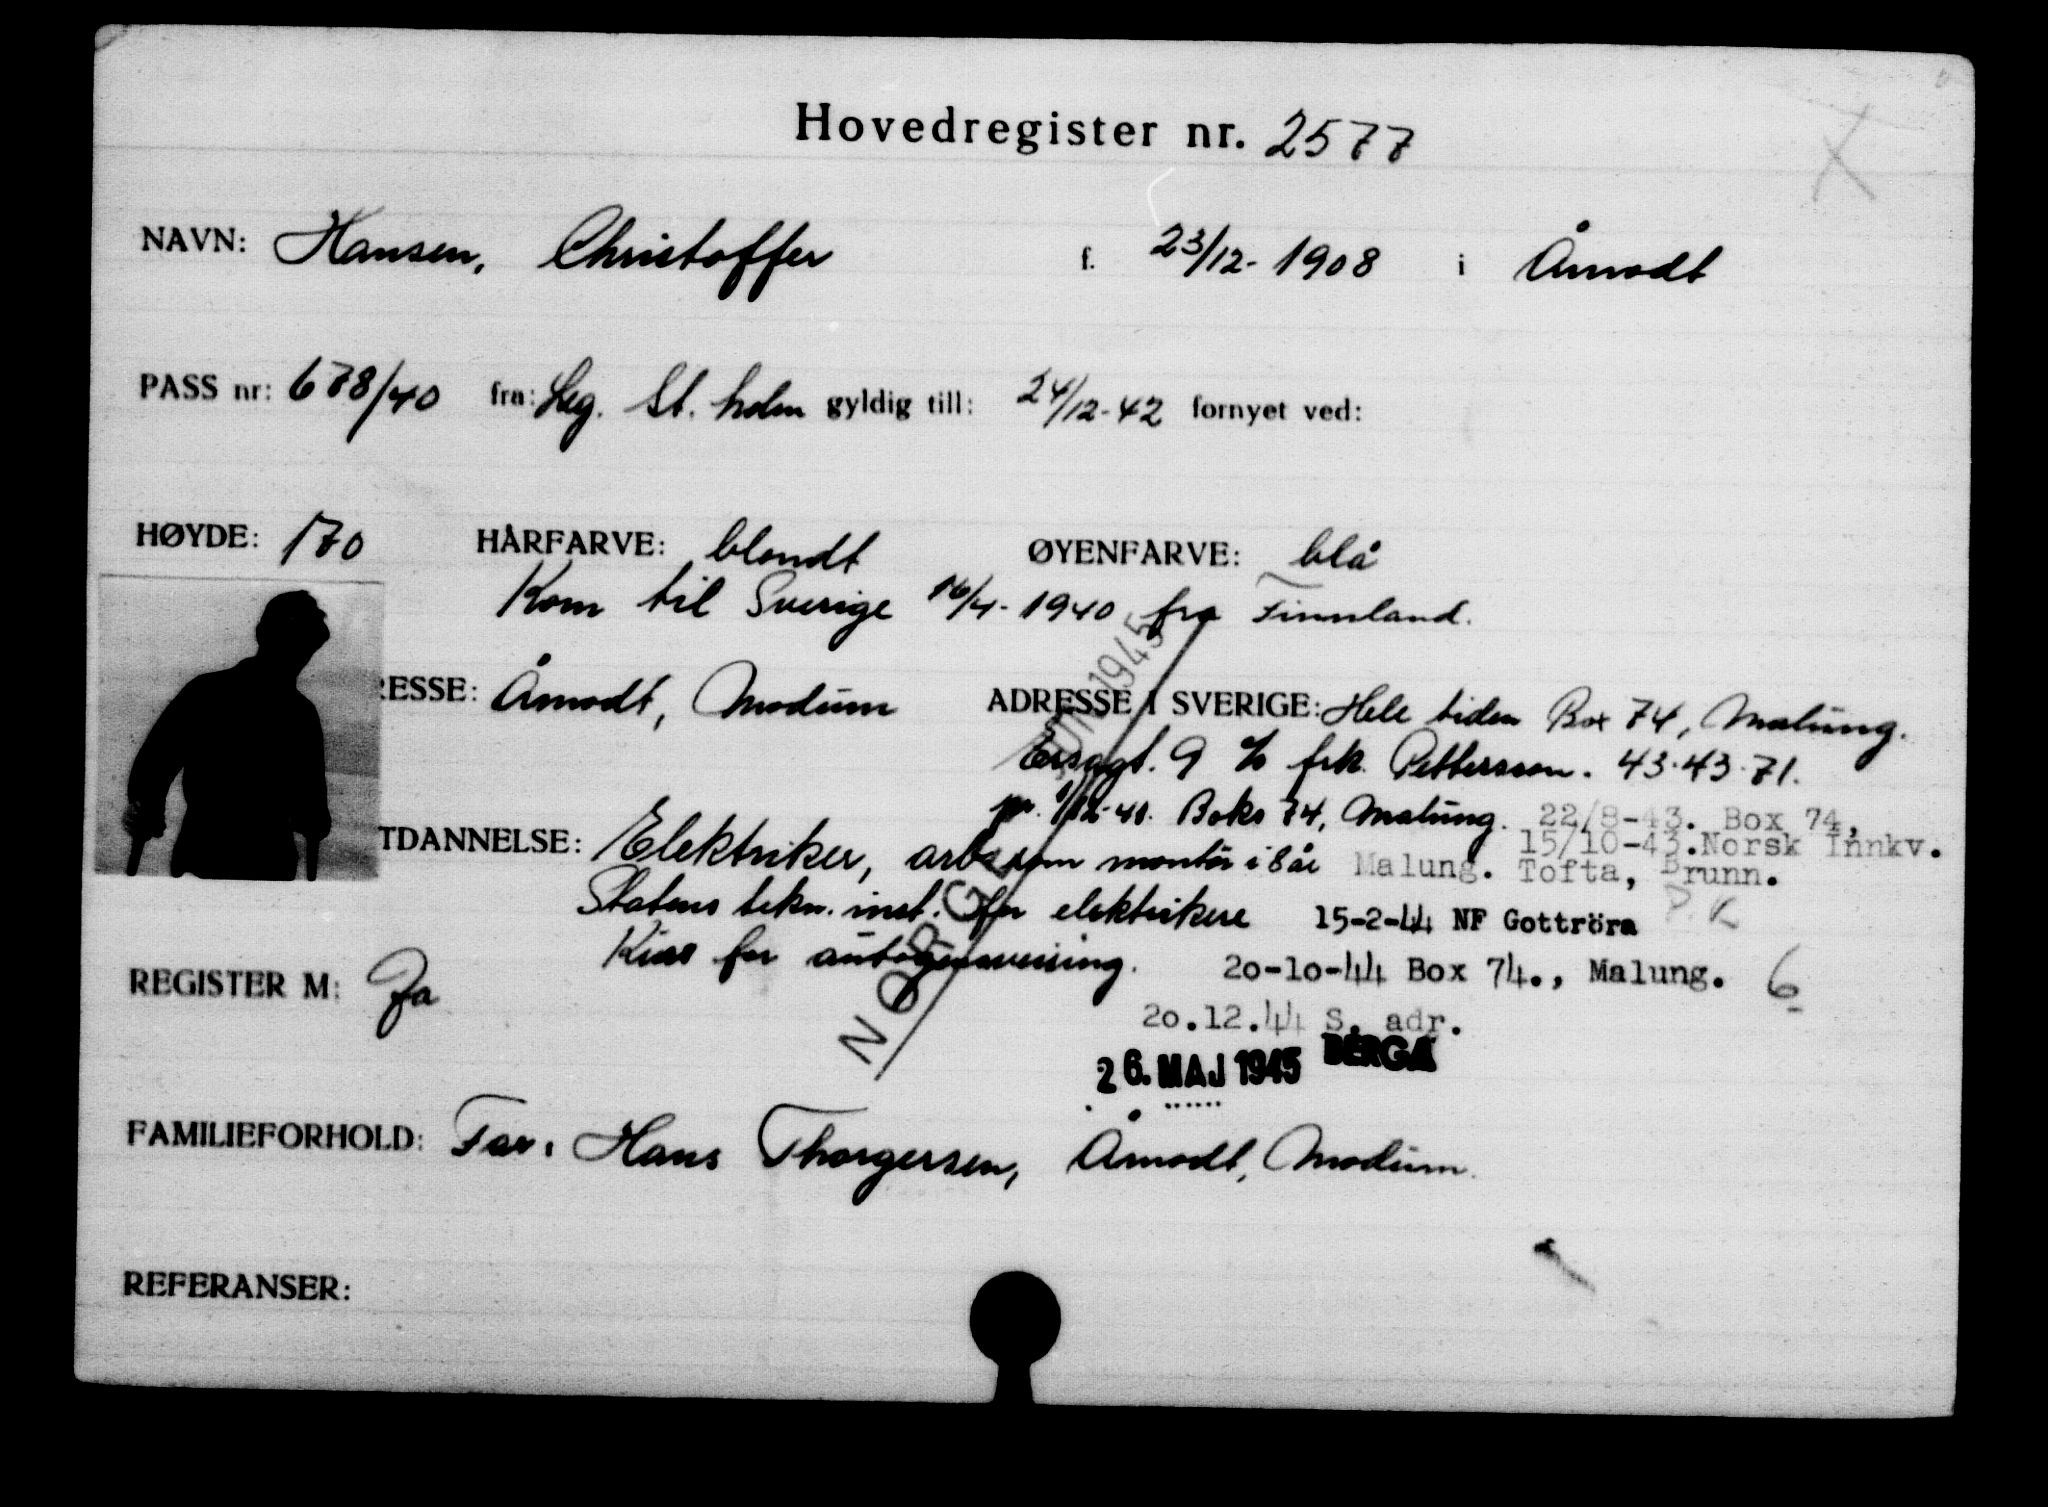 Hovedregister nr. 2577
NAVN: Hansen, Christoffer f. 23/12-1908 i Åmodt
PASS nr: 678/40 fra: Leg. St. holm gyldig till: 24/12-42 fornyet ved:
HØYDE: 170 HÅRFARVE: blondt ØYENFARVE: blå
Kom til Sverige 16/4-1940 fra Finnland.
RESSE: Åmodt, Modum ADRESSE I SVERIGE: Hele tiden Box 74, Malung.
Ersagt. 9 c/o frk. Pettersson. 43.43.71.
pr. 1/12-41. Boks 74, Malung. 22/8-43. Box 74,
15/10-43. Norsk Innkv.
TDANNELSE: Elektriker, arb. som montör i 8 år Malung. Tofta, Brunn.
P.K
Statens tekn. inst. for elektrikere 15-2-44 NF Gottröra
Kurs for autogensveising. 20-10-44 Box 74., Malung. 6
REGISTER M: Ja
20.12.44 S. adr.
NORGE 1945
26. MAJ 1945 BERGA
FAMILIEFORHOLD: Far: Hans Thorgersen, Åmodt, Modum.
REFERANSER: